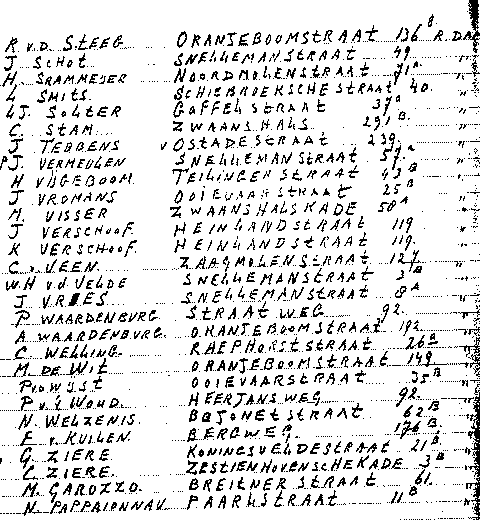 R v.d. STEEG ORANJEBOOMSTRAAT 136B R.DAM
J SCHOT SNELLEMANSTRAAT 49 "
H. SRAMMEJER NOORDMOLENSTRAAT 71A "
L SMITS. SCHIEBROEKSCHESTRAAT 40. "
L.J. SOLTER GAFFELSTRAAT 37A "
C. STAM. ZWAANSHALS 291B. "
J TEBBENS v OSTADESTRAAT 239. "
P.J. VERMEULEN SNELLEMANSTRAAT 57A "
H VIJGEBOOM. TEILINGERSTRAAT 43B "
J VROMANS OOIEVAARSTRAAT 25B "
M. VISSER ZWAANSHALSKADE 50A "
J VERSCHOOF HEINLANDSTRAAT 119 "
K VERSCHOOF. HEINLANDSTRAAT 119. "
C v. VEEN. ZAAGMOLENSTRAAT 127 "
W.H v.d VELDE SNELLEMANSTRAAT 3B "
J VRIES SNELLEMANSTRAAT 8A "
P WAARDENBURG STRAATWEG 92. "
A WAARDENBURG. ORANJEBOOMSTRAAT 192 "
C WELLING. RHEPHORSTSTRAAT 26B "
M. DE WIT ORANJEBOOMSTRAAT 149 "
OOIEVAARSTRAAT 35B "
P v.'t WOUD. HEERJANSWEG 92. "
N. WELZENIS. BAJONETSTRAAT 62B "
F v. KUILEN. BERGWEG. 176B "
G. ZIERE. KONINGSVELDESTRAAT 21B "
C. ZIERE. ZESTIENHOVENSCHEKADE 3B "
M. GAROZZO. BREITNERSTRAAT 61. "
N. PAPPAIONNAV PAARLSTRAAT 11B "